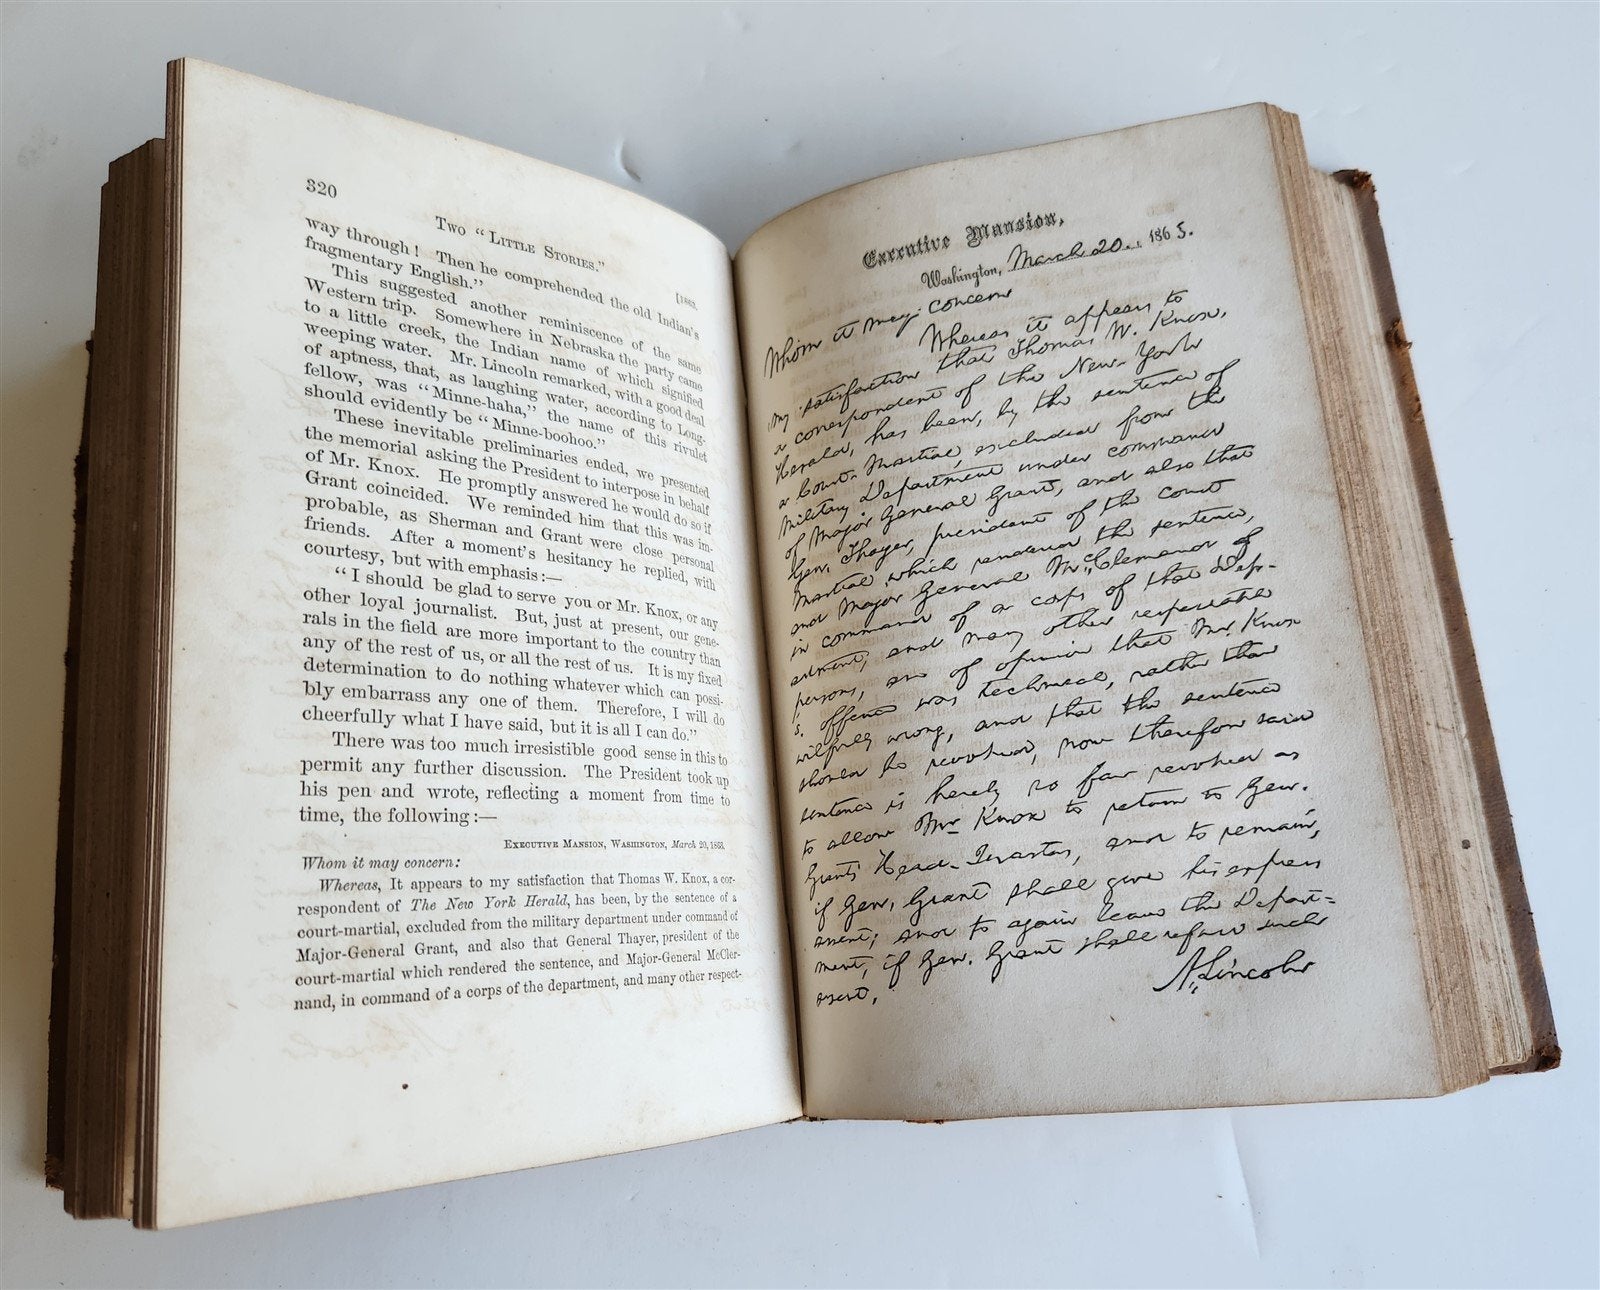 320
Two "Little Stories."
[1863.
way through! Then he comprehended the old Indian's
fragmentary English."
This suggested another reminiscence of the same
Western trip. Somewhere in Nebraska the party came
to a little creek, the Indian name of which signified
weeping water. Mr. Lincoln remarked, with a good deal
of aptness, that, as laughing water, according to Long-
fellow, was "Minne-haha," the name of this rivulet
should evidently be "Minne-boohoo."
These inevitable preliminaries ended, we presented
the memorial asking the President to interpose in behalf
of Mr. Knox. He promptly answered he would do so if
Grant coincided. We reminded him that this was im-
probable, as Sherman and Grant were close personal
friends. After a moment's hesitancy he replied, with
courtesy, but with emphasis:—
"I should be glad to serve you or Mr. Knox, or any
other loyal journalist. But, just at present, our gene-
rals in the field are more important to the country than
any of the rest of us, or all the rest of us. It is my fixed
determination to do nothing whatever which can possi-
bly embarrass any one of them. Therefore, I will do
cheerfully what I have said, but it is all I can do."
There was too much irresistible good sense in this to
permit any further discussion. The President took up
his pen and wrote, reflecting a moment from time to
time, the following:—
Executive Mansion, Washington, March 20, 1863.
Whom it may concern:
Whereas, It appears to my satisfaction that Thomas W. Knox, a cor-
respondent of The New York Herald, has been, by the sentence of a
court-martial, excluded from the military department under command of
Major-General Grant, and also that General Thayer, president of the
court-martial which rendered the sentence, and Major-General McCler-
nand, in command of a corps of the department, and many other respect-
Executive Mansion,
Washington, March 20., 1863.
Whom it may concern
Whereas it appears to
my satisfaction that Thomas W. Knox,
a correspondent of the New-York
Herald, has been, by the sentence of
a Court-Martial, excluded from the
Military Department under command
of Major General Grant, and also that
Gen. Thayer, president of the Court
Martial which rendered the sentence,
and Major General McClernand
in command of a corps of that Dep-
artment, and many other respectable
persons, are of opinion that Mr. Knox'
s. offence was technical, rather than
wilfully wrong, and that the sentence
should be revoked, now therefore said
sentence is hereby so far revoked as
to allow Mr. Knox to return to Gen.
Grant's Head-Quarters, and to remain,
if Gen. Grant shall give his express
assent; and to again leave the Depart=
ment, if Gen. Grant shall refuse such
assent.
A. Lincoln